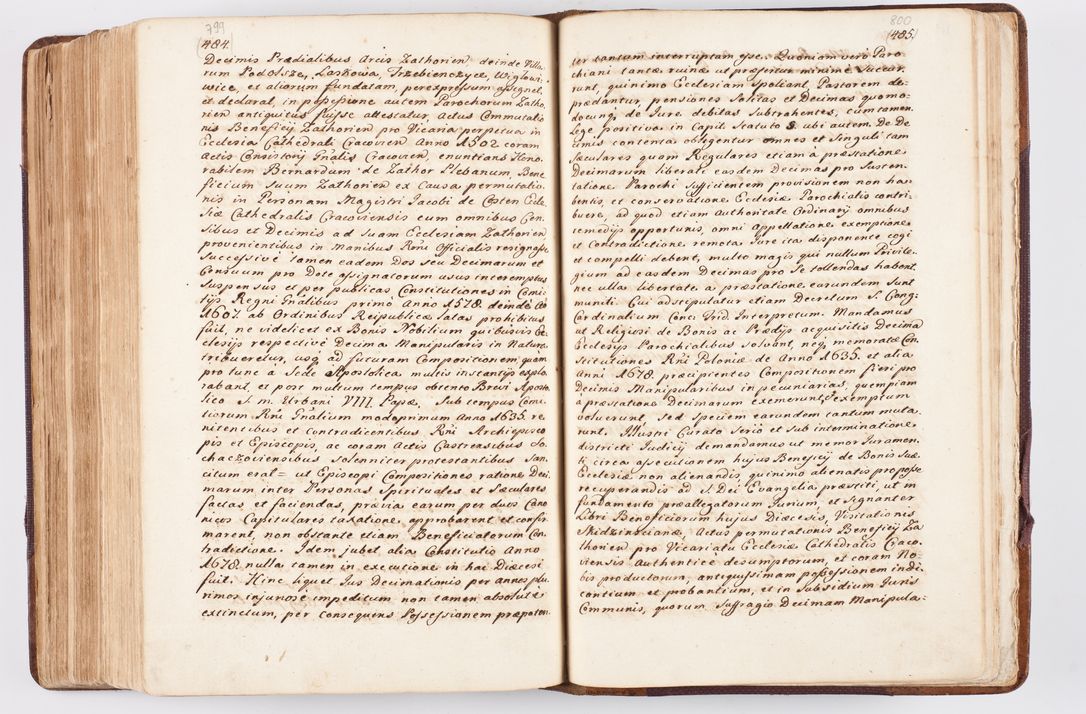 799
484.
Decimis Prædialibus Arcis Zathorien deinde Villa
rum Podolsze, Laskowa, Trzebienczyce, Wiglowi
wice, et aliorum fundatam, perexpressum assignet
et declarat, in possessione autem Parochorum Zatho
rien antiquitus fuisse attestatur, Actus Commutatio
nis Beneficij Zathorien pro Vicaria perpetua in
Ecclesia Cathedrali Cracovien Anno 1502 coram
Actis Consistorij Gnalis Cracovien, enuntians Hono
rabilem Bernardum de Zathor Plebanum, Bene
ficium Suum Zathorien ex Causa permutatio
nis in Personam Magistri Jacobi de Costen Eccle
siæ Cathedralis Cracoviensis cum omnibus Cen
sibus et Decimis ad Suam Ecclesiam Zathorien
provenientibus in manibus Rmi Officialis resignasse
Successive tamen eadem Dos seu Decimarum et
Censuum pro Dote assignatorum usus interemptus
Suspensus et per publicas Constitutiones in Comi
tijs Regni Gnalibus primo Anno 1578 deinde Ao
1607. ab Ordinibus Reipublicæ latas prohibitus
fuit, ne videlicet ex Bonis Nobilium quibusvis Ec
clesijs respective Decima Manipularis in Natura
tribueretur, usq ad futuram Compositionem, quam
pro tunc a Sede Apostolica multis instantijs explo
rabant, et post multum tempus obtento Brevi Aposto
lico S. m. Urbani VIII Papæ, Sub tempus Comi
tiorum Rni Gnalium modoprimum Anno 1635 re
nitentibus et contradicentibus Rni Archiepisco
pis et Episcopis, ac coram Actis Castrensibus So
chaczoviensibus solenniter protestantibus San
citum erat = ut Episcopi Compositiones ratione Deci
marum inter Personas Spirituales et Sæculares
factas et faciendas, prævia earum per duos Cano
nicos Capitulares taxatione, approbarent et confir
marent, non obstante etiam Beneficiatorum Con
tradictione. Idem jubet alia Constitutio Anno
1678 nulla tamen in executione in hac Diæcesi
fuit. Hinc liquet Jus Decimationis per annos plu
rimos injuriose impeditum non tamen absolute
extinctum, per consequens Possessionem præpoten
800
485.
ter tantum interruptam esse. Quoniam vero Paro
chiani tantæ ruinæ ut præfertur minime Succur
runt, quinimo Ecclesiam Spoliant, Pastorem de
prædantur, pensiones Solitas et Decimas quomo-
docunq de Jure debitas Subtrahentes, cum tamen
Lege positiva in Capit. Statuto S. ubi autem De De
cimis contenta obligentur omnes et Singuli tam
Sæculares quam Regulares etiam a præstatione
Decimarum liberati easdem Decimas pro Susten-
tatione Parochi Sufficientem provisionem non ha-
bentis, et conservatione Ecclesiæ Parochialis contri-
buere, ad quod etiam Authoritate Ordinarij omnibus
remedijs opportunis, omni appellatione exemptione
et Contradictione remota Jure ita disponente cogi
et compelli debent, multo magis qui nullum Privile-
gium ad easdem Decimas pro Se tollendas habent,
nec ulla libertate a præstatione earundem Sunt
muniti. Cui adstipulatur etiam Decretum S. Cong:
Cardinalium Conc: Trid. Interpretum. Mandamus
ut Religiosi de Bonis ac Prædijs acquisitis Decima
Ecclesijs Parochialibus Solvant, neq memoratæ Con
stitutiones Rni Poloniæ de Anno 1635. et alia
Anni 1678. præcipientes Compositionem fieri pro
Decimis Manipularibus in pecuniarias, quempiam
a præstatione Decimarum exemerunt, et exemptum
voluerunt, Sed Speciem earundem tantum muta-
runt. Illustri Curato Serio et Sub interminatione
districti Judicij demandamus ut memor Juramen
ti circa assecutionem hujus Beneficij de Bonis Suæ
Ecclesiæ non alienandis, quinimo alienatis pro posse
recuperandis ad S. Dei Evangelia præstiti, ut in
fundamento præallegatorum Jurium, et Signanter
Libri Beneficiorum hujus Diæcesis, Visitationis
Skidzinscianæ, Actus permutationis Beneficij Za
thorien pro Vicariatu Ecclesiæ Cathedralis Craco
viensis Authentice desumptorum, et coram No
bis productorum, antiquissimam possessionem indi
cantium et probantium, et in Subsidium Juris
Communis, quorum Suffragio Decimam Manipula-